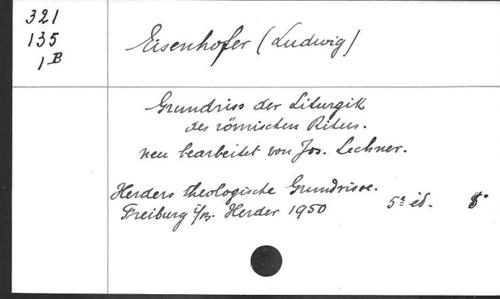 321
135
1B
Eisenhofer (Ludwig)
Grundriss der Liturgik
des römischen Ritus.
neu bearbeitet von Jos. Lechner.
Herders theologische Grundrisse.
Freiburg i/Br. Herder 1950 5e éd. 8°